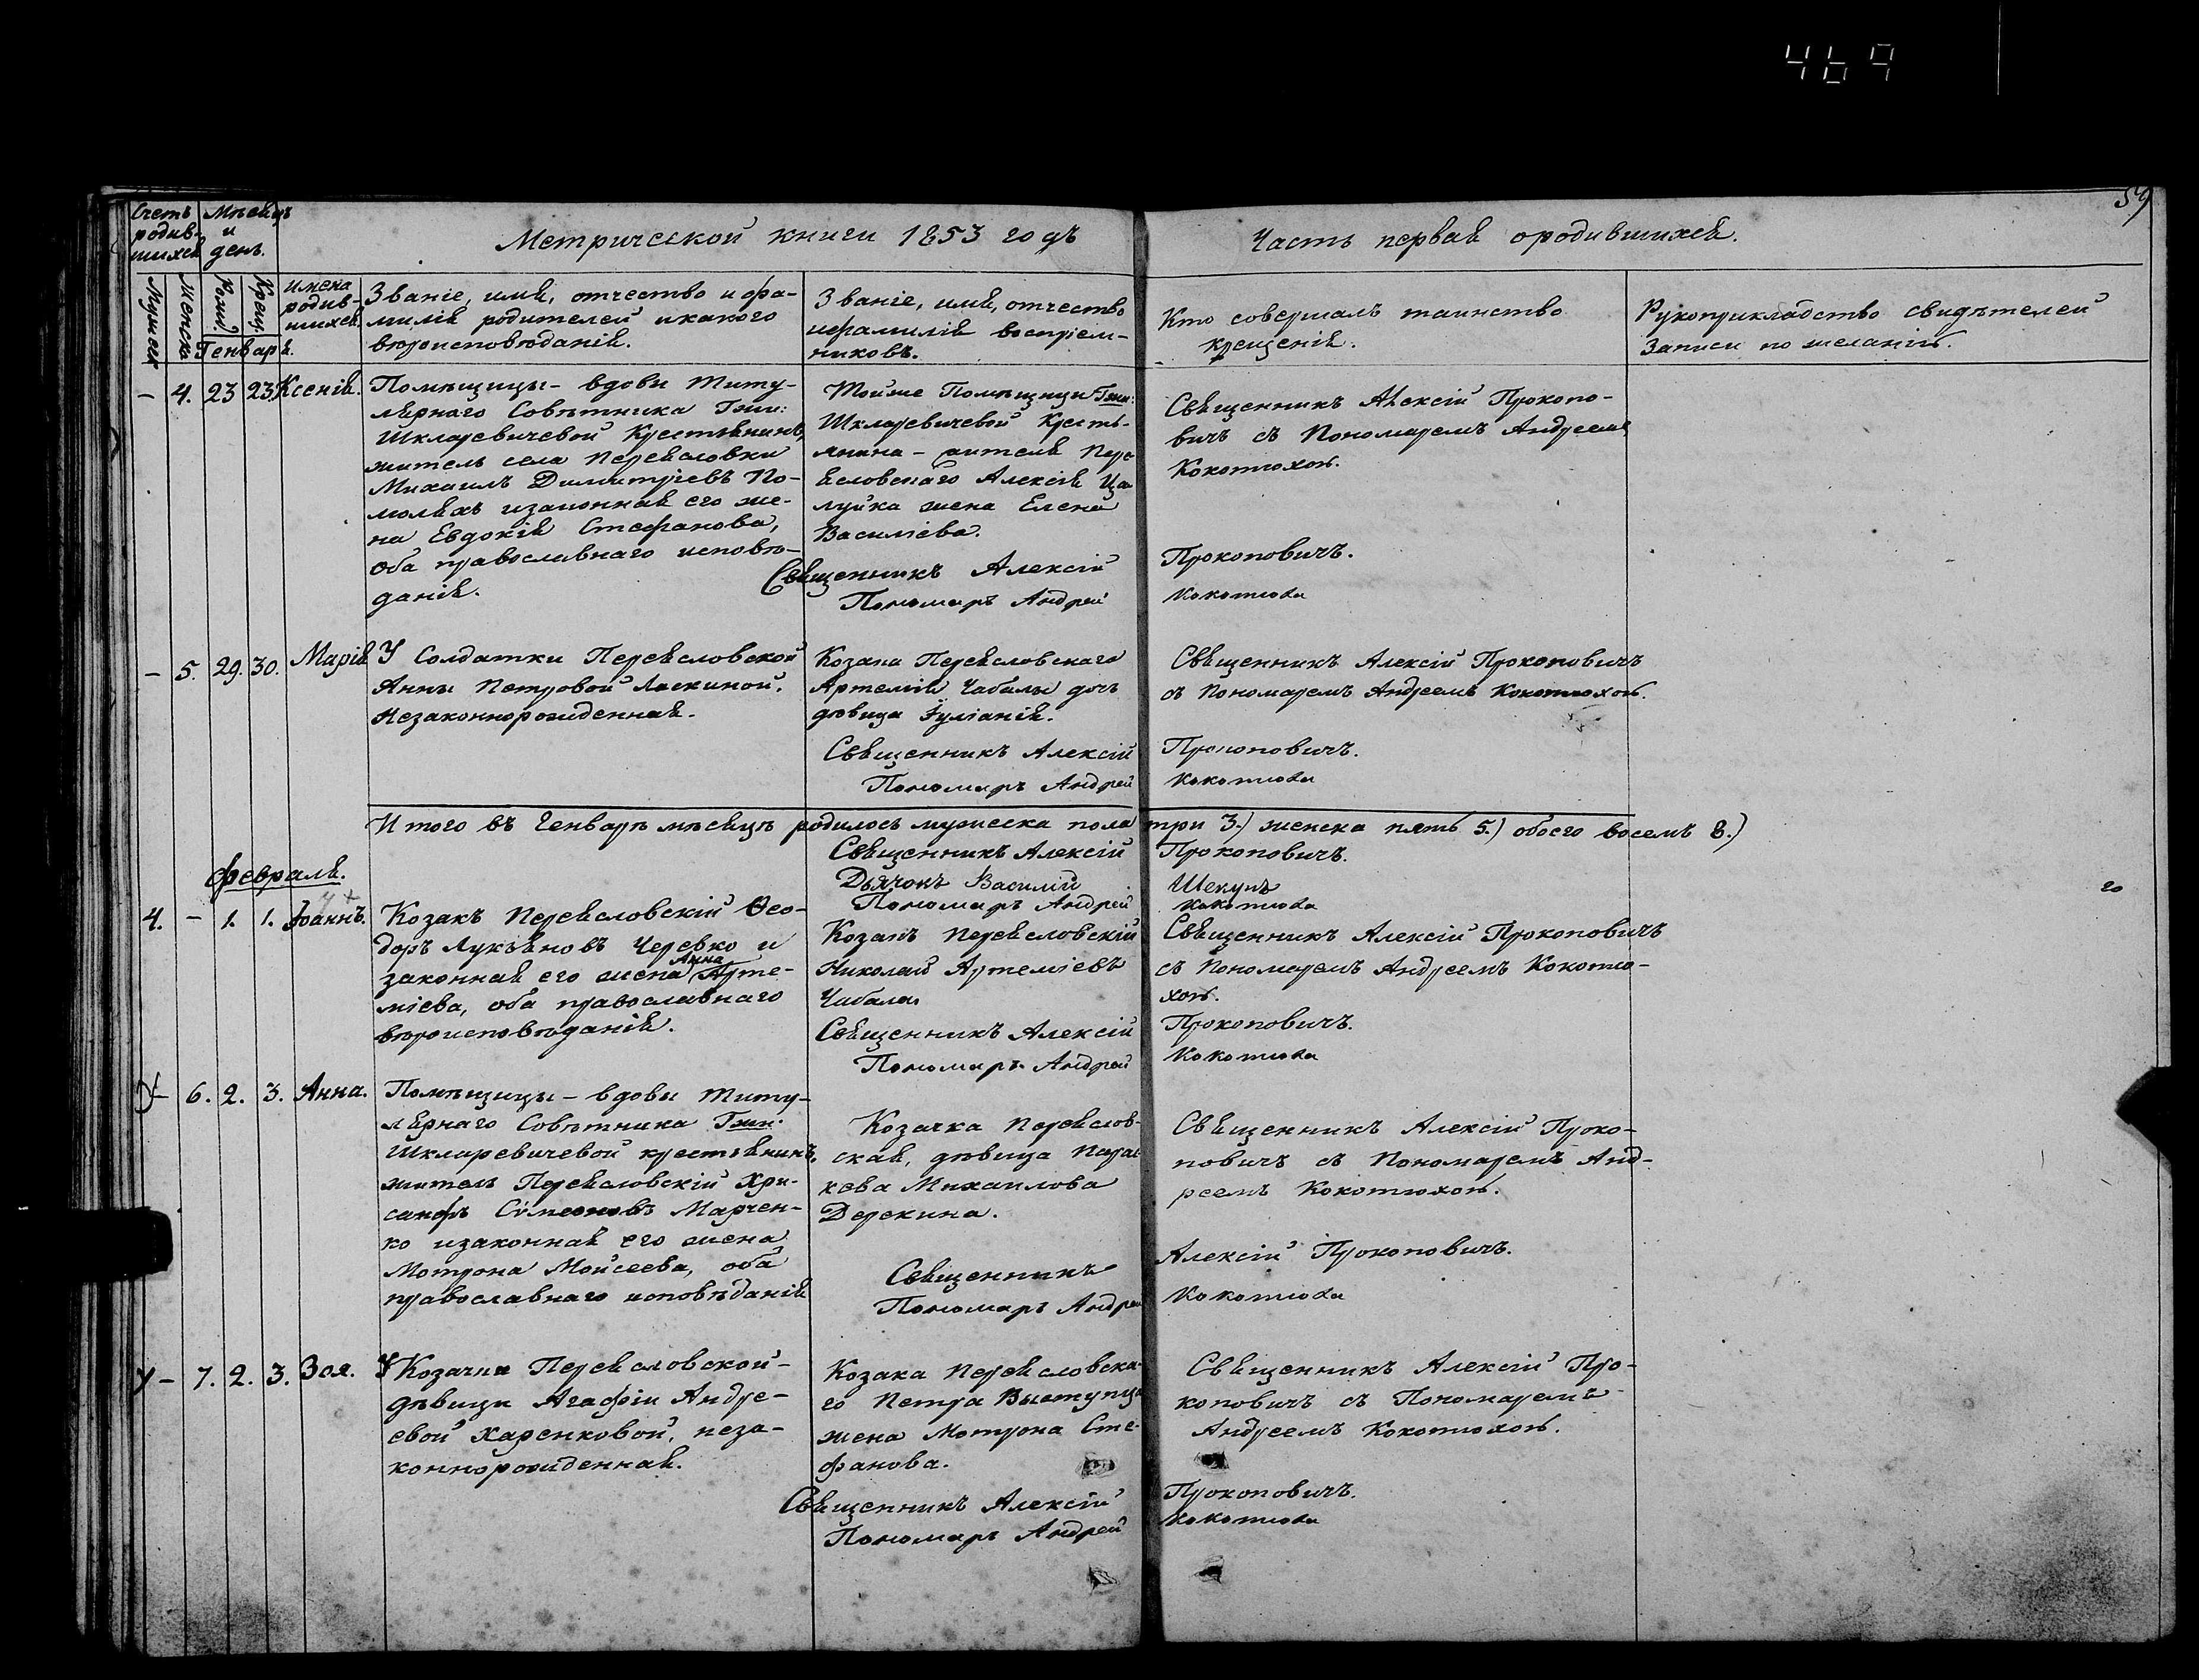 469
59
Счетъ родив- шихся
Мѣсяцъ и день.
Метрической книги 1853 годъ
Часть первая ородившихся.
Мужеска
Женска
Рожд.
Крещ.
Генваря.
имена
родив-
шихся
Званіе, имя, отчество и фа-
милія родителей икакого
вѣроисповѣданія.
Званіе, имя, отчество
ифамилія воспріем-
никовъ.
Кто совершалъ таинство
крещенія.
Рукоприкладство свидѣтелей
Записи по желанію.
- 4. 23 23 Ксенія.
Помѣщицы - вдовы Титу-
лярнаго Совѣтника Гжи:
Шкляревичевой Крестьянинъ,
житель села Переясловки
Михаилъ Димитріевъ По-
моляхъ изаконная его же-
на Евдокія Стефанова,
оба православнаго исповѣ-
данія.
Тойже Помѣщицы Гжи:
Шкляревичевой Кресть-
янина - жителя Пере
ясловскаго Алексія Ца-
луйка жена Елена
Василіева.
Священникъ Алексій
Пономарь Андрей
Священникъ Алексій Прокопо-
вичъ съ Пономаремъ Андреемъ
Кокотюхою.
Прокоповичъ.
Кокотюха
- 5. 29. 30. Марія
У Солдатки Переясловской
Анны Петровой Ласкиной.
Незаконнорожденная.
Козака Переясловскаго
Артемія Чабалы дочь
дѣвица Іуліанія.
Священникъ Алексій
Пономарь Андрей
Священникъ Алексій Прокоповичъ
съ Пономаремъ Андреемъ Кокотюхою.
Прокоповичъ.
Кокотюха
Итого въ Генварѣ мѣсяцѣ родилось мужеска пола три 3.) женска пять 5.) обоего восемъ 8.)
Священникъ Алексій Прокоповичъ.
Дьячокъ Василій Шекунъ
Пономарь Андрей Кокотюха
Февраля.
4. - 1. 1. Іоаннъ.
Козакъ Переясловскій Ѳео-
доръ Лукьяновъ Черевко и
законная его жена Анна Арте-
міева, оба православнаго
вѣроисповѣданія.
Козакъ Переясловскій
Николай Артеміевъ
Чабала
Священникъ Алексій
Пономарь Андрей
Священникъ Алексій Прокоповичъ
съ Пономаремъ Андреемъ Кокотю-
хою.
Прокоповичъ.
Кокотюха
- 6. 2. 3. Анна.
Помѣщицы - вдовы Титу-
лярнаго Совѣтника Гжи.
Шкляревичевой крестьянинъ,
житель Переясловскій Хри-
санфъ Сѵмеоновъ Марчен-
ко изаконная его жена
Мотрона Мойсеева, оба
православнаго исповѣданія
Козачка Переяслов-
ская, дѣвица Парас
кева Михаилова
Дерекина.
Священникъ
Пономарь Андрей
Священникъ Алексій Проко-
повичъ съ Пономаремъ Анд-
реемъ Кокотюхою.
Алексій Прокоповичъ.
Кокотюха
- 7. 2. 3. Зоя.
У Козачки Переясловской -
дѣвицы Агафіи Андре-
евой Харенковой, неза-
коннорожденная.
Козака Переясловска-
го Петра Выступца
жена Мотрона Сте-
фанова.
Священникъ Алексій
Пономарь Андрей
Священникъ Алексій Про-
коповичъ съ Пономаремъ
Андреемъ Кокотюхою.
Прокоповичъ.
Кокотюха